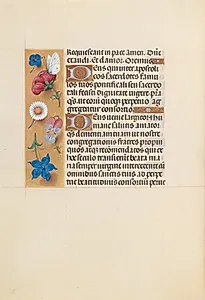 Requiescant in pace amen. Dñe
exaudi. Et clamor. Oremus
Deus qui inter aposto
licos sacerdotes famu
los tuos pontificali seu sacerdo
tali fecisti dignitate vigere pr̄a
qs ut eorū quoqz perpetuo ag
gregentur consortio
Deus venie largitor et hu
mane salutis amator
qs clementiam tuam ut nostre
congregationis fratres propin
quos atqz recomēdatos qui ex
hoc seculo transierūt beata ma
ria semper virgine intercedente cū
omnibus sanctis tuis ad perpe
tue beatitudinis consortiū perue